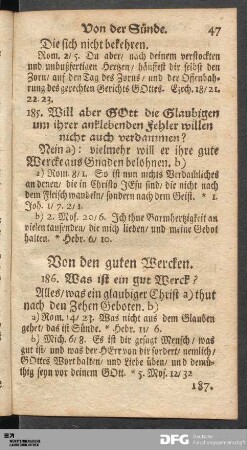 Von der Sünde. 47
Die sich nicht bekehren.
Rom. 2/5. Du aber/ nach deinem verstockten
und unbußfertigen Hertzen/ häuffest dir selbst den
Zorn/ auf den Tag des Zorns/ und der Offenbah-
rung des gerechten Gerichts GOttes. Ezech. 18/21.
22. 23.
185. Will aber GOtt die Glaubigen
um ihrer anklebenden Fehler willen
nicht auch verdammen?
Nein a): vielmehr will er ihre gute
Wercke aus Gnaden belohnen. b)
a) Rom. 8/1. So ist nun nichts Verdamliches
an denen/ die in Christo JEsu sind/ die nicht nach
dem Fleisch wandeln/ sondern nach dem Geist. * 1.
Joh. 1/7. 2/1.
b) 2. Mos. 20/6. Ich thue Barmhertzigkeit an
vielen tausenden/ die mich lieben/ und meine Gebot
halten. * Hebr. 6/10.
Von den guten Wercken.
186. Was ist ein gut Werck?
Alles/ was ein glaubiger Christ a) thut
nach den Zehen Geboten. b)
a) Rom. 14/23. Was nicht aus dem Glauben
gehet/ das ist Sünde. * Hebr. 11/6.
b) Mich. 6/8. Es ist dir gesagt Mensch/ was
gut ist/ und was der HErr von dir fordert/ nemlich/
GOttes Wort halten/ und Liebe üben/ und demü-
thig seyn vor deinem GOtt. * 5. Mos. 12/32
187.
DFG Deutsche
Forschungsgemeinschaft